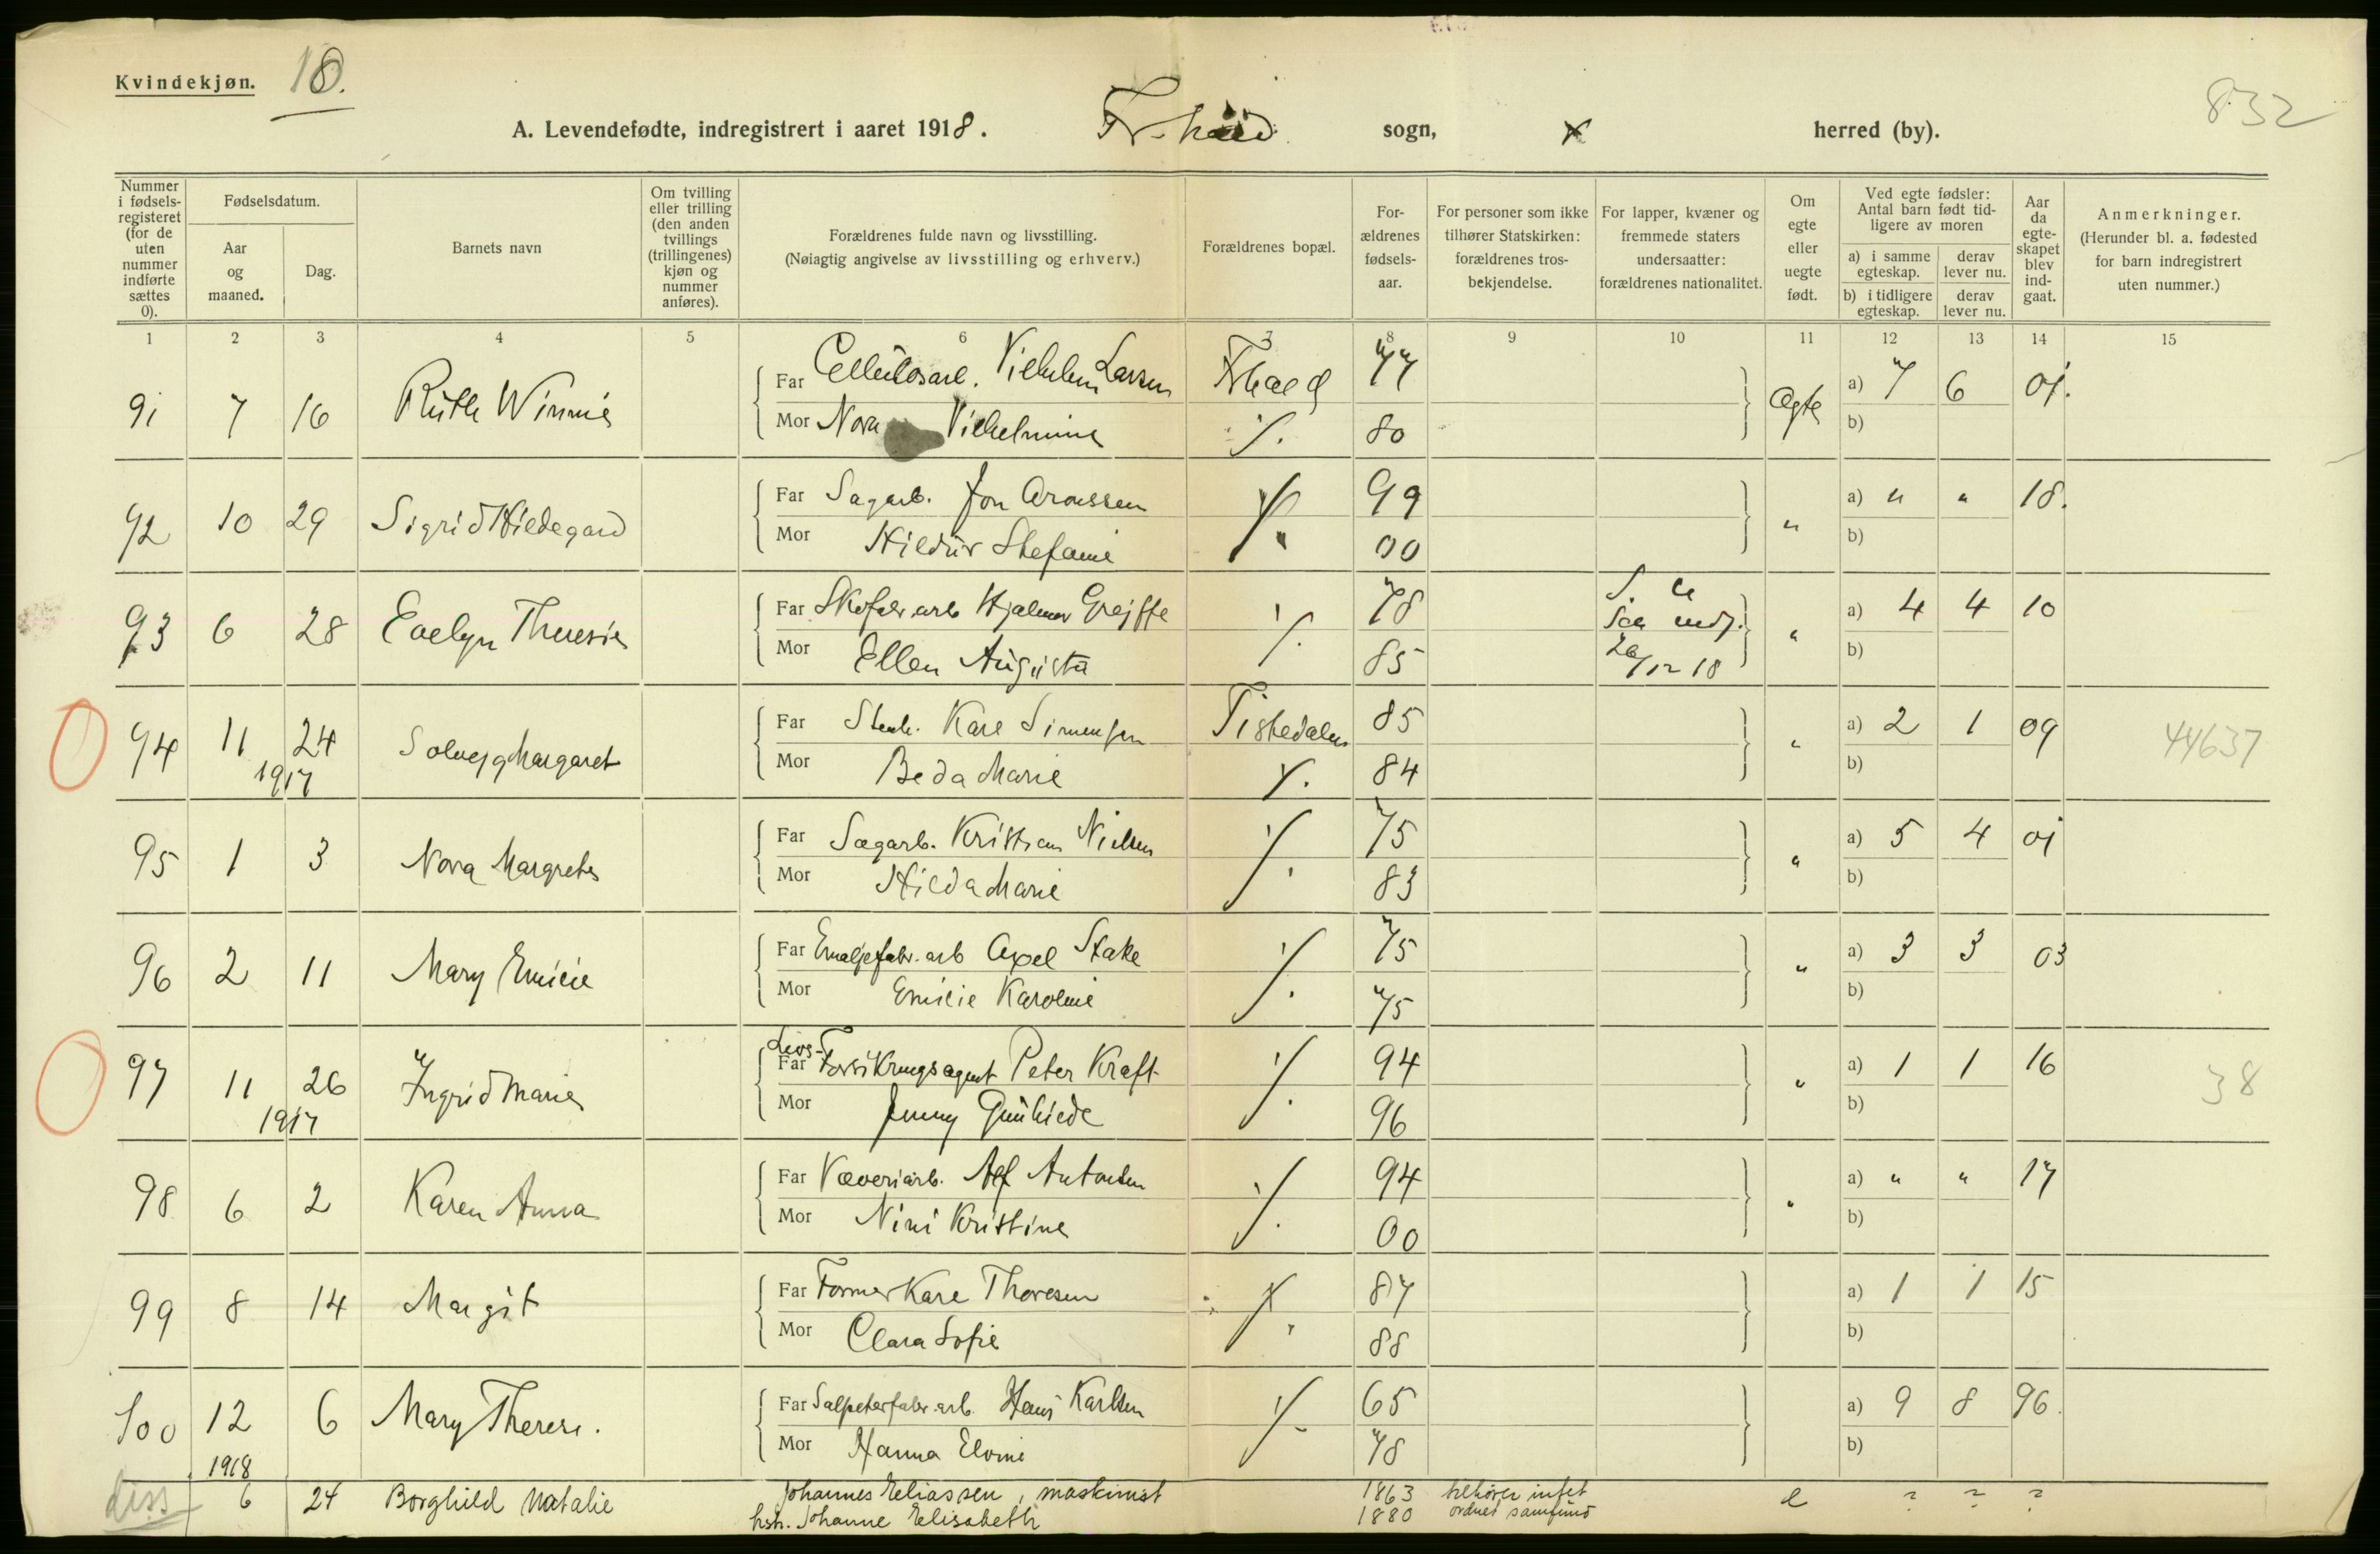 Kvindekjøn. 18.
832
A. Levendefødte, indregistrert i aaret 1918. Fr.hald sogn, herred (by).
Nummer i fødselsregisteret (for de uten nummer indførte sættes 0).
Fødselsdatum.
Aar og maaned.
Dag.
Barnets navn
Om tvilling eller trilling (den anden tvillings (trillingenes) kjøn og nummer anføres).
Forældrenes fulde navn og livsstilling.
(Nøiagtig angivelse av livsstilling og erhverv.)
Forældrenes bopæl.
For-ældrenes fødsels-aar.
For personer som ikke tilhører Statskirken: forældrenes trosbekjendelse.
For lapper, kvæner og fremmede staters undersaatter: forældrenes nationalitet.
Om egte eller uegte født.
Ved egte fødsler: Antal barn født tidligere av moren
a) i samme egteskap. derav lever nu.
b) i tidligere egteskap. derav lever nu.
Aar da egteskapet blev indgaat.
Anmerkninger.
(Herunder bl. a. fødested for barn indregistrert uten nummer.)
1 2 3 4 5 6 7 8 9 10 11 12 13 14 15
91 7 16 Ruth Winnie Far Cellulosearb. Vilhelm Larsen Fr.hald 77 Egte a) 7 6 01.
Mor Nora Vilhelmine ./. 80 b)
92 10 29 Sigrid Hildegard Far Sagarb. Jon Aronssen ./. 99 " a) " " 18.
Mor Hildur Stefanie 00 b)
93 6 28 Evelyn Theresie Far Skofabr.arb Hjalmar Greiffe ./. 78 " a) 4 4 10
Mor Ellen Augusta 85 26/12 18 b)
94 11 24 Solveig Margaret Far Karl Simensen Tistedalen 85 " a) 2 1 09 44637
1917 Mor Beda Marie ./. 84 b)
95 1 3 Nora Margrethe Far Sagarb. Kristian Nielsen ./. 75 " a) 5 4 01
Mor Hilda Marie 83 b)
96 2 11 Mary Emilie Far Emaljefabr.arb Axel Stake ./. 75 " a) 3 3 03
Mor Emilie Karoline 75 b)
97 11 26 Ingrid Marie Far Livs-Forsikringsagent Peter Kraft ./. 94 " a) 1 1 16 38
1917 Mor Jenny Gunhilde 96 b)
98 6 2 Karen Anna Far Væveriarb. Alf Antonsen ./. 94 " a) " " 17
Mor Nini Kristine 00 b)
99 8 14 Margit Far Former Karl Thoresen ./. 87 a) 1 1 15
Mor Clara Sofie 88 b)
100 12 6 Mary Therese. Far Salpeterfabr.arb. Hans Karlsen ./. 65 a) 9 8 96.
Mor Hanna Elvine 78 b)
1918
diss 6 24 Borghild Natalie Johannes Eliassen, maskinist 1863 tilhører intet e ? ? ?
hstr. Johanne Elisabeth 1880 ordnet samfund